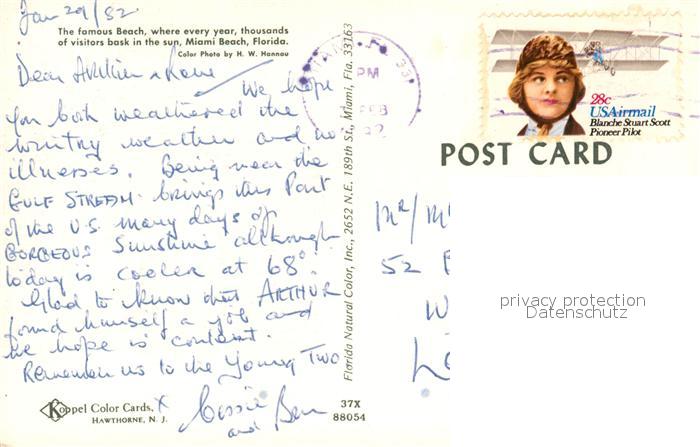 Jan 29/82
The famous Beach, where every year, thousands
of visitors bask in the sun, Miami Beach, Florida.
Color Photo by H. W. Hannau
Dear
We hope
you both weathered the
wintry weather and no
illnesses. Being near the
GULF STREAM brings this Part
of the U.S. many days of
GORGEOUS Sunshine although
today is cooler at 68°.
Glad to know that ARTHUR
found himself a job and
we hope is content.
Remember us to the Young Two
Cissie
and Ben
Koppel Color Cards,
HAWTHORNE, N. J.
37X
88054
Florida Natural Color, Inc., 2652 N.E. 189th St., Miami, Fla. 33163
PM
FEB
28c
USAirmail
Blanche Stuart Scott
Pioneer Pilot
POST CARD
Mr/M
52
privacy protection
Datenschutz